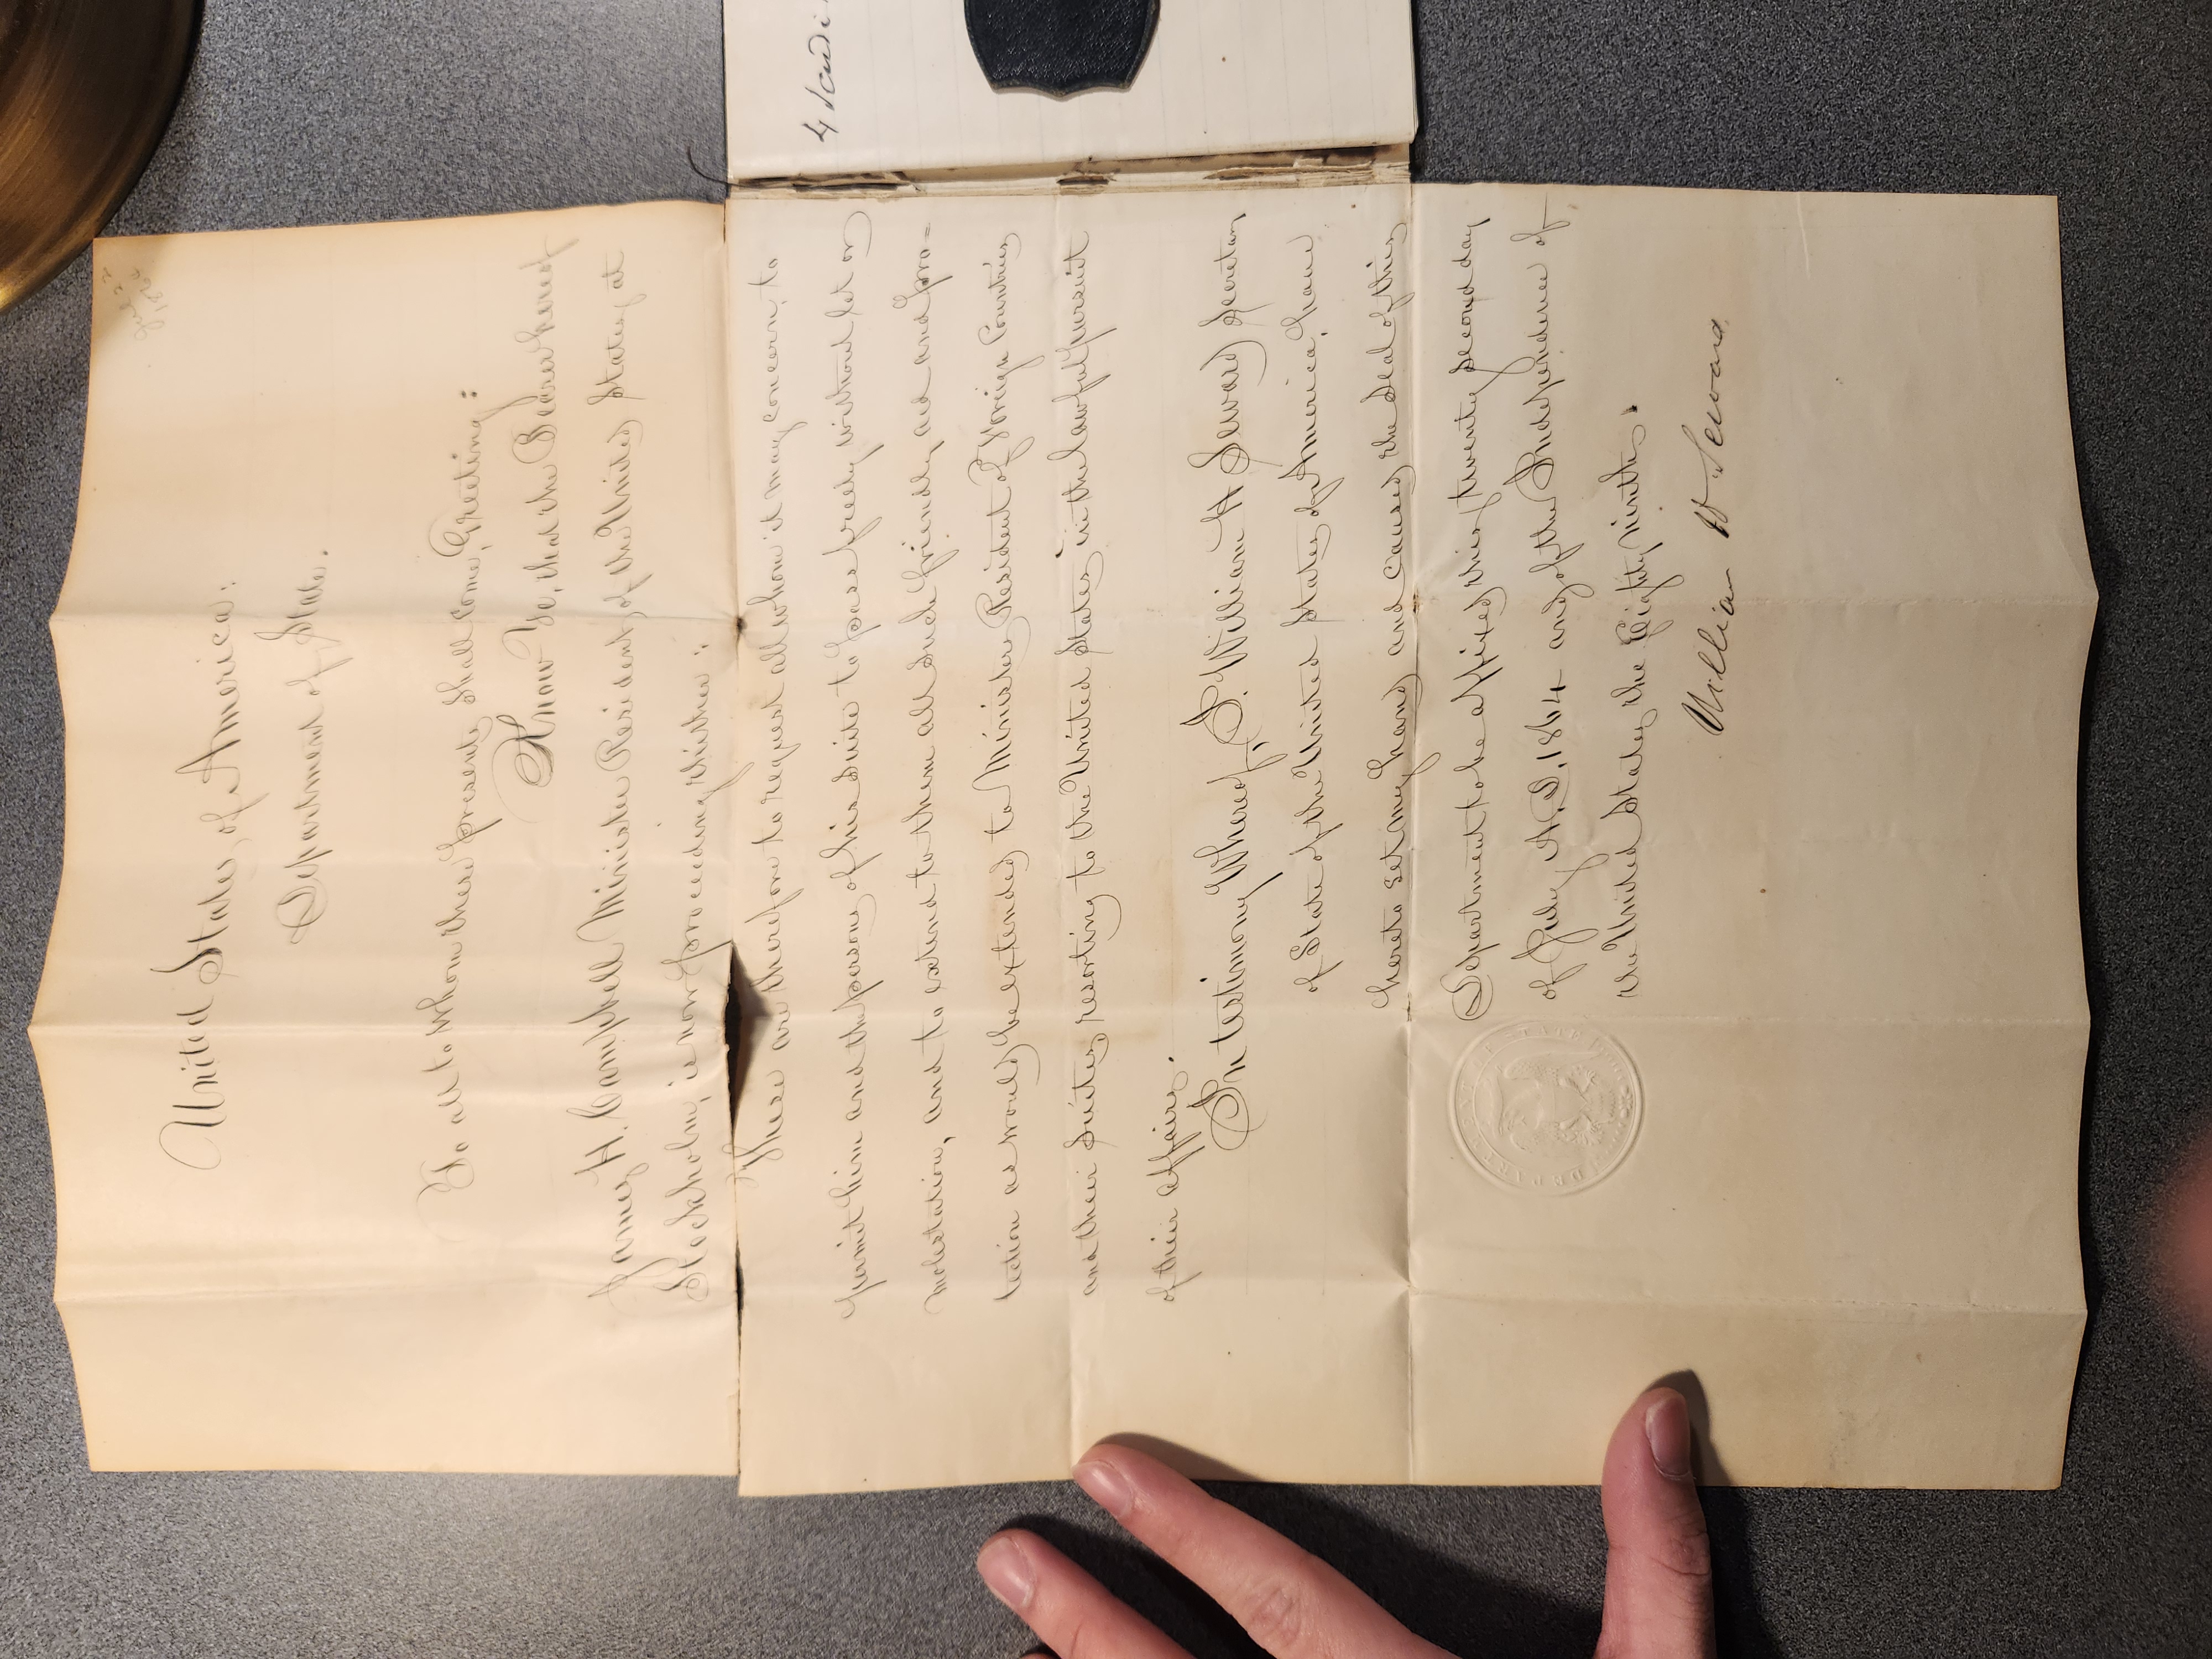 Jul 22
1864
United States of America:
Department of State.
To all to whom these presents shall come, Greeting:
Know Ye, that the Bearer hereof
James H. Campbell Minister Resident of the United States at
Stockholm, is now proceeding thither:
These are therefore to request all whom it may concern, to
permit him and the persons of his Suite to pass freely without let or
molestation, and to extend to them all such friendly aid and pro=
tection as would be extended to Ministers Resident of Foreign Countries
and their Suites, resorting to the United States in the lawful pursuit
of their affairs.
In testimony Whereof, I, William H Seward Secretary
of State of the United States of America, have
hereto set my hand and caused the Seal of this
Department to be affixed this twenty second day
of July, A.D. 1864 and of the Independence of
the United States the Eighty ninth.
DEPARTMENT OF STATE
William H Seward.